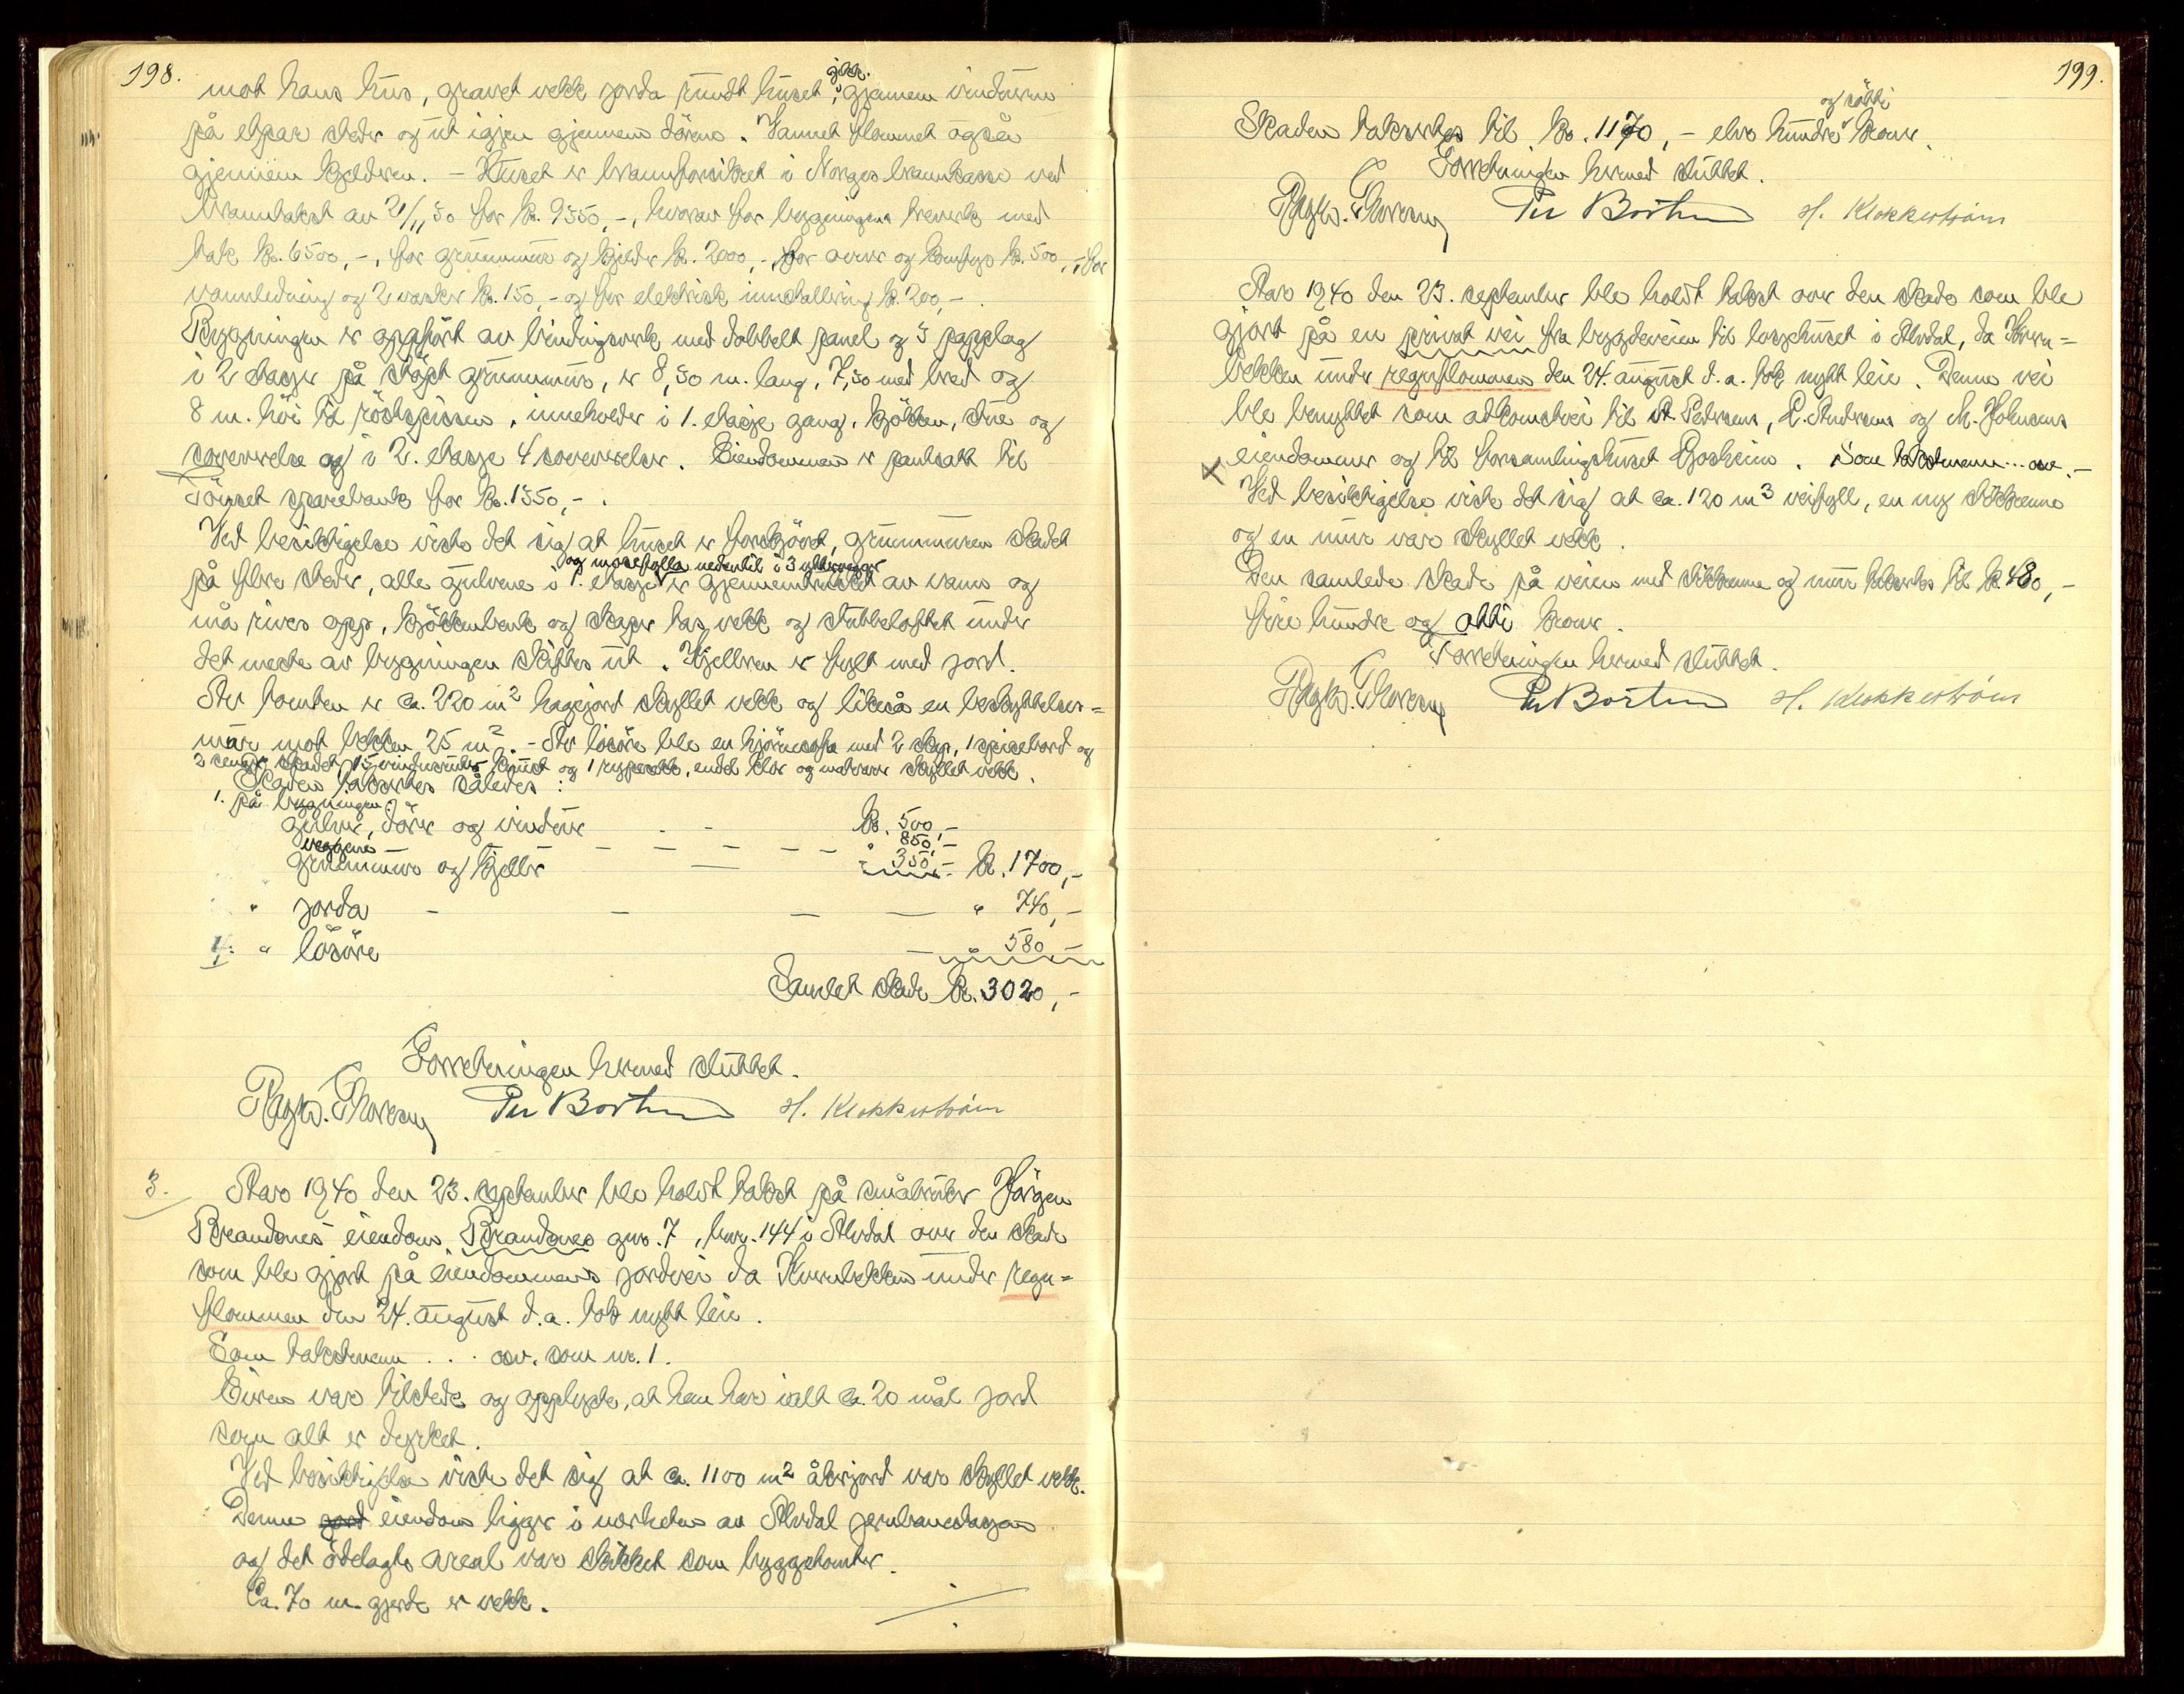 198.
mot hans hus, gravet vekk jorda rundt huset, gikk gjennem vinduerne
på etpar steder og ut igjen gjennem dörene. Vannet flommet også
gjennem kjelderen. - Huset er brannforsikret i Norges brannkasse ved
branntakst av 21/11,30 for kr. 9350,-, hvorav for bygningens treverk med
tak kr. 6500,-, for grunnmur og kjelder kr. 2000,-, for ovner og komfyr kr. 500,-, for
vannledning og 2 vasker kr. 150,- og for elektrisk innstallering kr. 200,-.
Bygningen er oppfört av bindingsverk med dobbelt panel og 3 papplag
i 2 etasjer på stöpt grunnmur, er 8,50 m. lang, 7,50 med bred og
8 m. höi til röstspissen, inneholder i 1. etasje gang, kjökken, stue og
soveverelse og i 2. etasje 4 soveverelser. Eiendommen er pantsatt til
Tönset sparebank for kr. 1350,-.
Ved besiktigelse viste det sig at huset er forskjövet, grunnmuren skadet
på flere steder, alle gulvene i 1. etasje og mosefylla nedentil i 3 yttervegger er gjennemtrukket av vann og
må rives opp, kjökkenbenk og skaper tas vekk og stubbeloftet under
det meste av bygningen skiftes ut. Kjelleren er fylt med jord.
Av tomten er ca. 220 m² hagejord skyllet vekk og likeså en beskyttelses=
mur mot bekken 25 m². - Av lösöre ble en hjörnesofa med 2 skap, 1 spisebord og
3 senger skadet, 15 vindusruter knust og 1 rypesekk, endel klær og matvarer skyllet vekk.
Skaden takseres således:
1. på bygningen:
gulver, dörer og vinduer - - kr. 500,-
veggene - - - - - " 850,-
grunnmur og kjeller - " 350,- kr. 1700,-
" jorda - - - - " 740,-
" lösöre - " 580,-
Samlet skade kr. 3020,-
Forretningen hermed sluttet.
Thoresen Per Borten H. Klokkerström
3. År 1940 den 23. september ble holdt takst på småbruker Jörgen
Brandsnes eiendom, Brandsnes gnr. 7, bnr. 144 i Alvdal over den skade
som ble gjort på eiendommens jordvei da Kvernbekken under regn=
flommen den 24. august d.a. tok nytt leie.
Som takstmenn . . . osv. som nr. 1.
Eieren var tilstede og opplyste, at han har ialt ca. 20 mål jord
som alt er dyrket.
Ved besiktigelse viste det sig at ca. 1100 m² åkerjord var skyllet vekk.
Denne jord eiendom ligger i nærheten av Alvdal jernbanestasjon
og det ödelagte areal var skikket som byggetomter.
Ca. 70 m. gjerde er vekk.
199.
Skaden takseres til kr. 1170,- elve hundre og sötti kroner.
Forretningen hermed sluttet.
Thoresen Per Borten H. Klokkerström
År 1940 den 23. september ble holdt takst over den skade som ble
gjort på en privat vei fra bygdeveien til losjehuset i Alvdal, da Kvern=
bekken under regnflommen den 24. august d.a. tok nytt leie. Denne vei
ble benyttet som adkomstvei til A. Pedersens, E. Andersens og M. Johnsens
eiendommer og til forsamlingshuset Gosheim. Som takstmenn ... osv.-
Ved besiktigelse viste det sig at ca. 120 m³ veifyll, en ny stikkrenne
og en mur var skyllet vekk.
Den samlede skade på veien med stikkrenne og mur takseres til kr. 480,-
fire hundre og åtti kroner.
Forretningen hermed sluttet.
Thoresen Per Borten H. Klokkerström